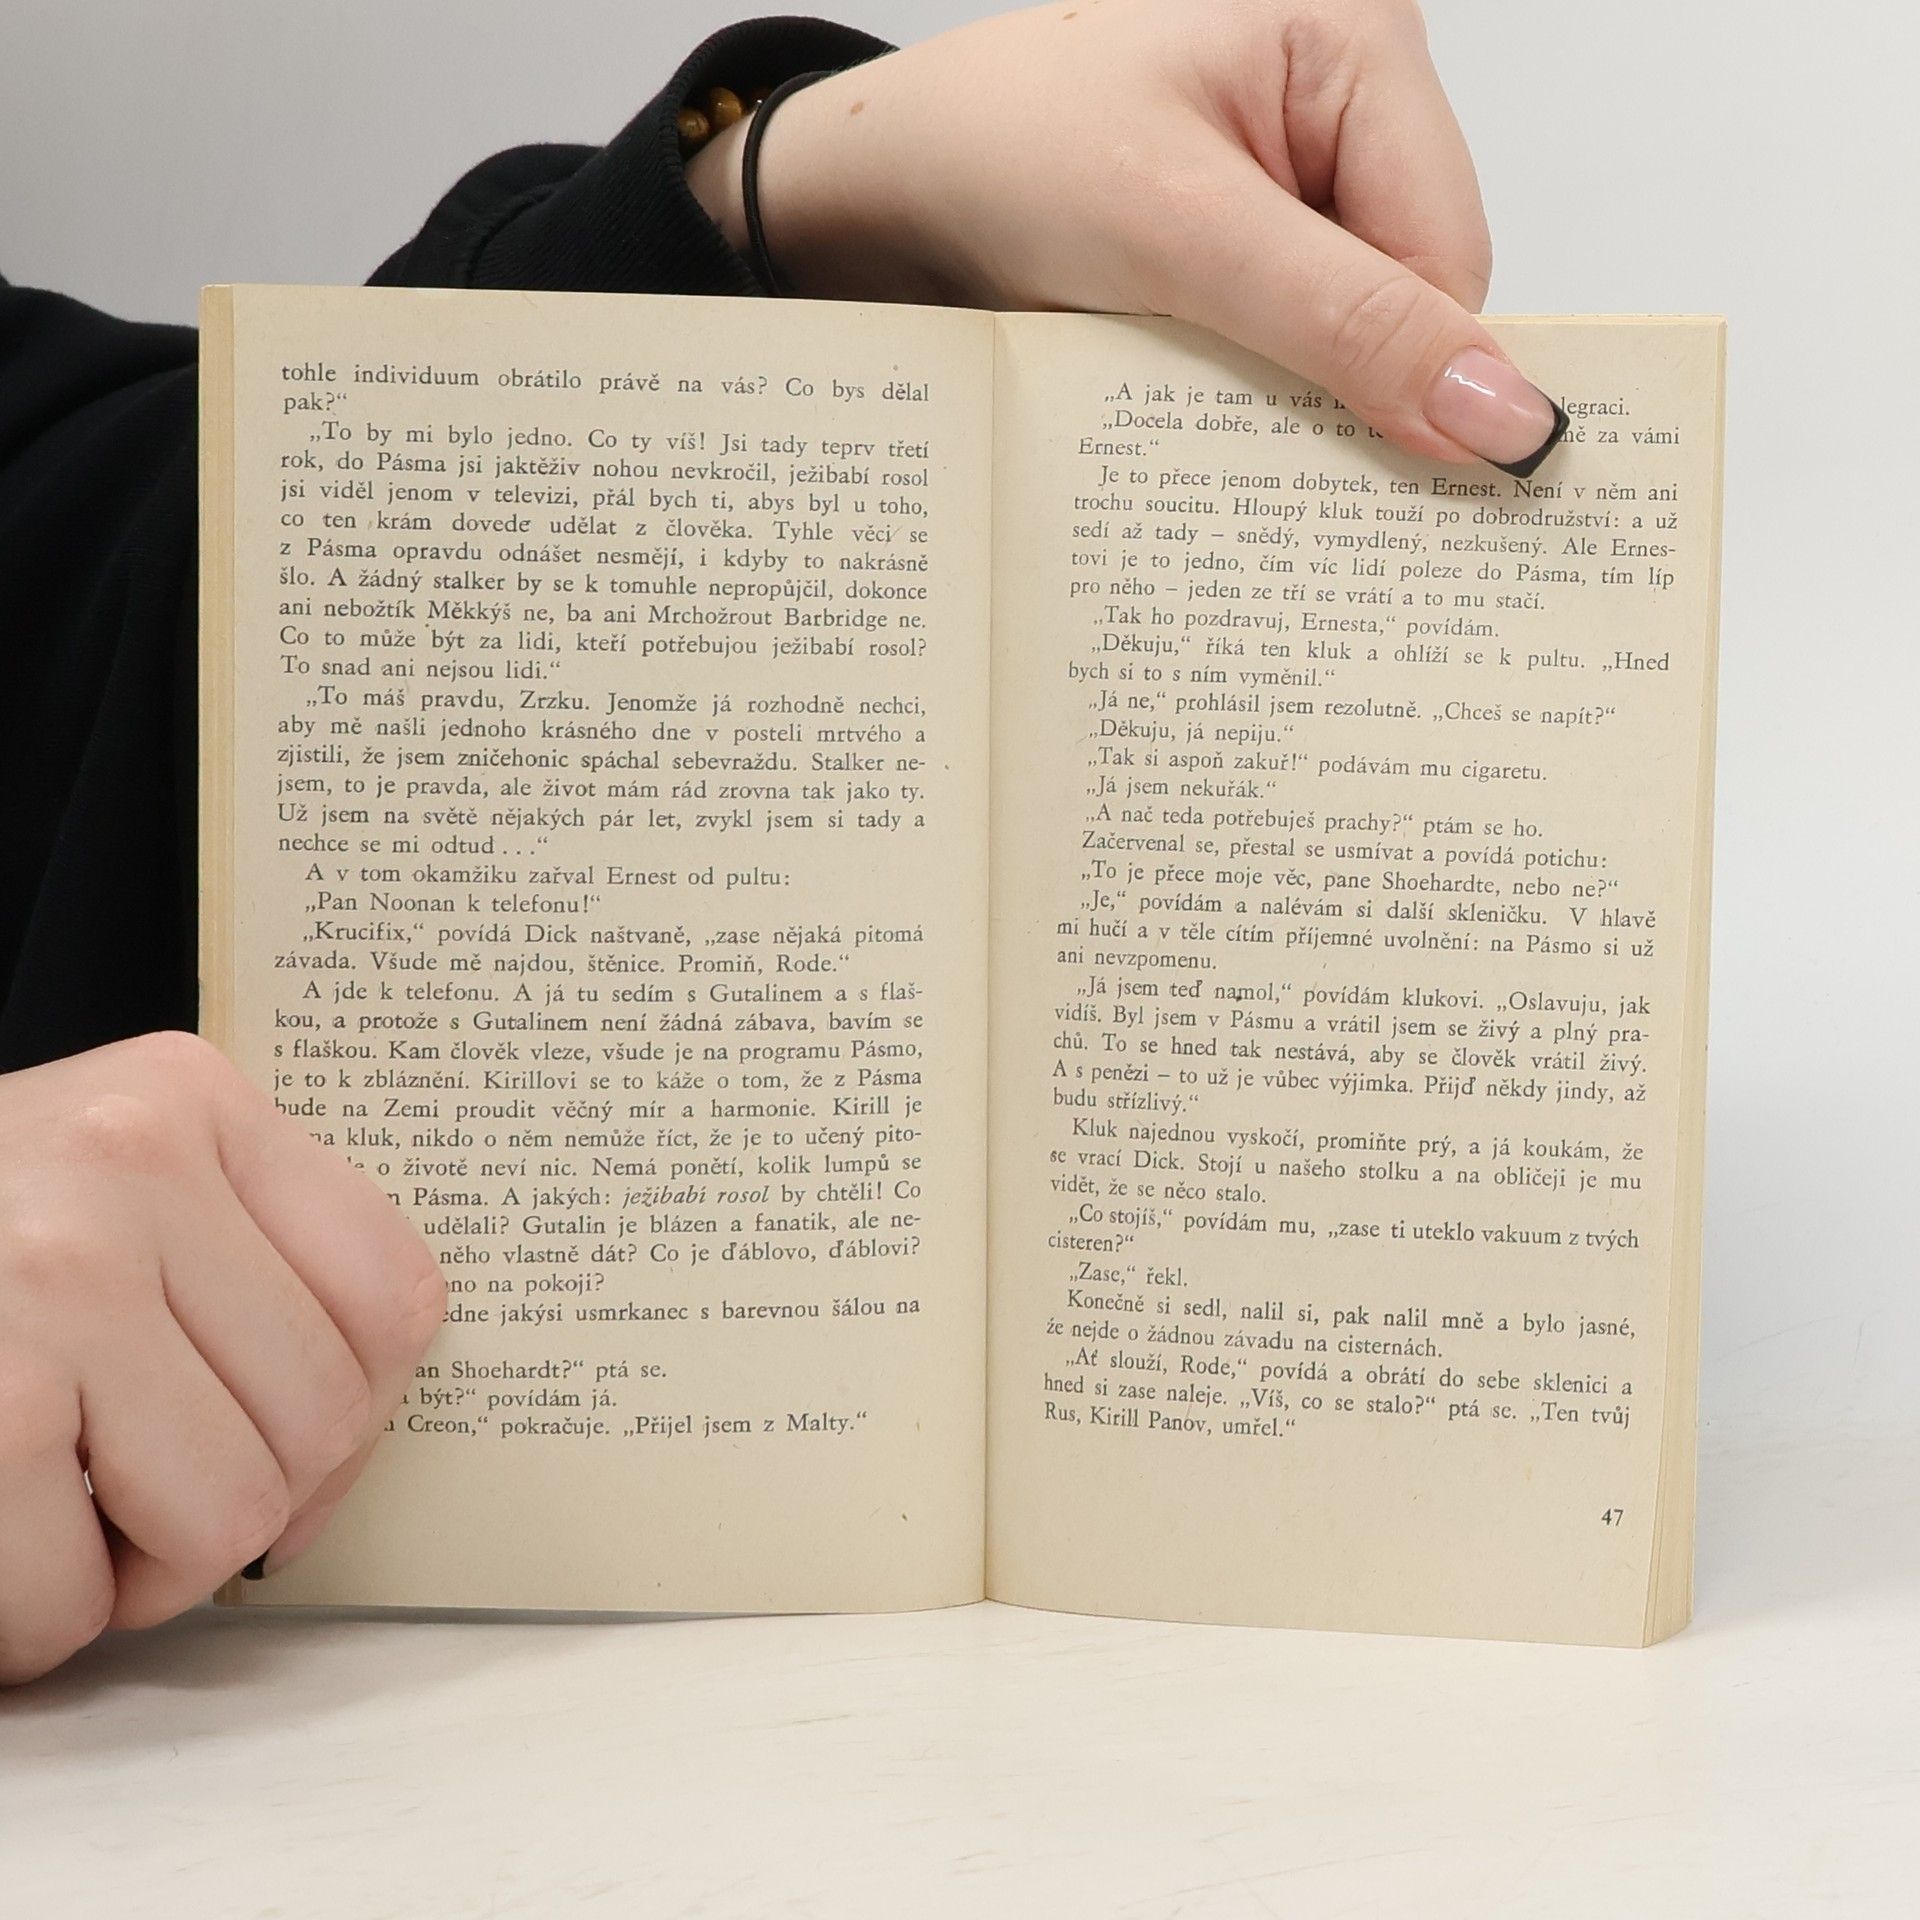 tohle individuum obrátilo právě na vás? Co bys dělal
pak?“
„To by mi bylo jedno. Co ty víš! Jsi tady teprv třetí
rok, do Pásma jsi jaktěživ nohou nevkročil, ježibabí rosol
jsi viděl jenom v televizi, přál bych ti, abys byl u toho,
co ten krám dovede udělat z člověka. Tyhle věci se
z Pásma opravdu odnášet nesmějí, i kdyby to nakrásně
šlo. A žádný stalker by se k tomuhle nepropůjčil, dokonce
ani nebožtík Měkkýš ne, ba ani Mrchožrout Barbridge ne.
Co to může být za lidi, kteří potřebujou ježibabí rosol?
To snad ani nejsou lidi.“
„To máš pravdu, Zrzku. Jenomže já rozhodně nechci,
aby mě našli jednoho krásného dne v posteli mrtvého a
zjistili, že jsem zničehonic spáchal sebevraždu. Stalker ne-
jsem, to je pravda, ale život mám rád zrovna tak jako ty.
Už jsem na světě nějakých pár let, zvykl jsem si tady a
nechce se mi odtud . . .“
A v tom okamžiku zařval Ernest od pultu:
„Pan Noonan k telefonu!“
„Krucifix,“ povídá Dick naštvaně, „zase nějaká pitomá
závada. Všude mě najdou, štěnice. Promiň, Rode.“
A jde k telefonu. A já tu sedím s Gutalinem a s flaš-
kou, a protože s Gutalinem není žádná zábava, bavím se
s flaškou. Kam člověk vleze, všude je na programu Pásmo,
je to k zbláznění. Kirillovi se to káže o tom, že z Pásma
bude na Zemi proudit věčný mír a harmonie. Kirill je
kluk, nikdo o něm nemůže říct, že je to učený pito-
o životě neví nic. Nemá ponětí, kolik lumpů se
Pásma. A jakých: ježibabí rosol by chtěli! Co
udělali? Gutalin je blázen a fanatik, ale ne-
něho vlastně dát? Co je ďáblovo, ďáblovi?
na pokoji?
jakýsi usmrkanec s barevnou šálou na
Shoehardt?“ ptá se.
být?“ povídám já.
Creon,“ pokračuje. „Přijel jsem z Malty.“
„A jak je tam u vás legraci.
„Docela dobře, ale o to za vámi
Ernest.“
Je to přece jenom dobytek, ten Ernest. Není v něm ani
trochu soucitu. Hloupý kluk touží po dobrodružství: a už
sedí až tady – snědý, vymydlený, nezkušený. Ale Ernes-
tovi je to jedno, čím víc lidí poleze do Pásma, tím líp
pro něho – jeden ze tří se vrátí a to mu stačí.
„Tak ho pozdravuj, Ernesta,“ povídám.
„Děkuju,“ říká ten kluk a ohlíží se k pultu. „Hned
bych si to s ním vyměnil.“
„Já ne,“ prohlásil jsem rezolutně. „Chceš se napít?“
„Děkuju, já nepiju.“
„Tak si aspoň zakuř!“ podávám mu cigaretu.
„Já jsem nekuřák.“
„A nač teda potřebuješ prachy?“ ptám se ho.
Začervenal se, přestal se usmívat a povídá potichu:
„To je přece moje věc, pane Shoehardte, nebo ne?“
„Je,“ povídám a nalévám si další skleničku. V hlavě
mi hučí a v těle cítím příjemné uvolnění: na Pásmo si už
ani nevzpomenu.
„Já jsem teď namol,“ povídám klukovi. „Oslavuju, jak
vidíš. Byl jsem v Pásmu a vrátil jsem se živý a plný pra-
chů. To se hned tak nestává, aby se člověk vrátil živý.
A s penězi – to už je vůbec výjimka. Přijď někdy jindy, až
budu střízlivý.“
Kluk najednou vyskočí, promiňte prý, a já koukám, že
se vrací Dick. Stojí u našeho stolku a na obličeji je mu
vidět, že se něco stalo.
„Co stojíš,“ povídám mu, „zase ti uteklo vakuum z tvých
cisteren?“
„Zase,“ řekl.
Konečně si sedl, nalil si, pak nalil mně a bylo jasné,
že nejde o žádnou závadu na cisternách.
„Ať slouží, Rode,“ povídá a obrátí do sebe sklenici a
hned si zase naleje. „Víš, co se stalo?“ ptá se. „Ten tvůj
Rus, Kirill Panov, umřel.“
47